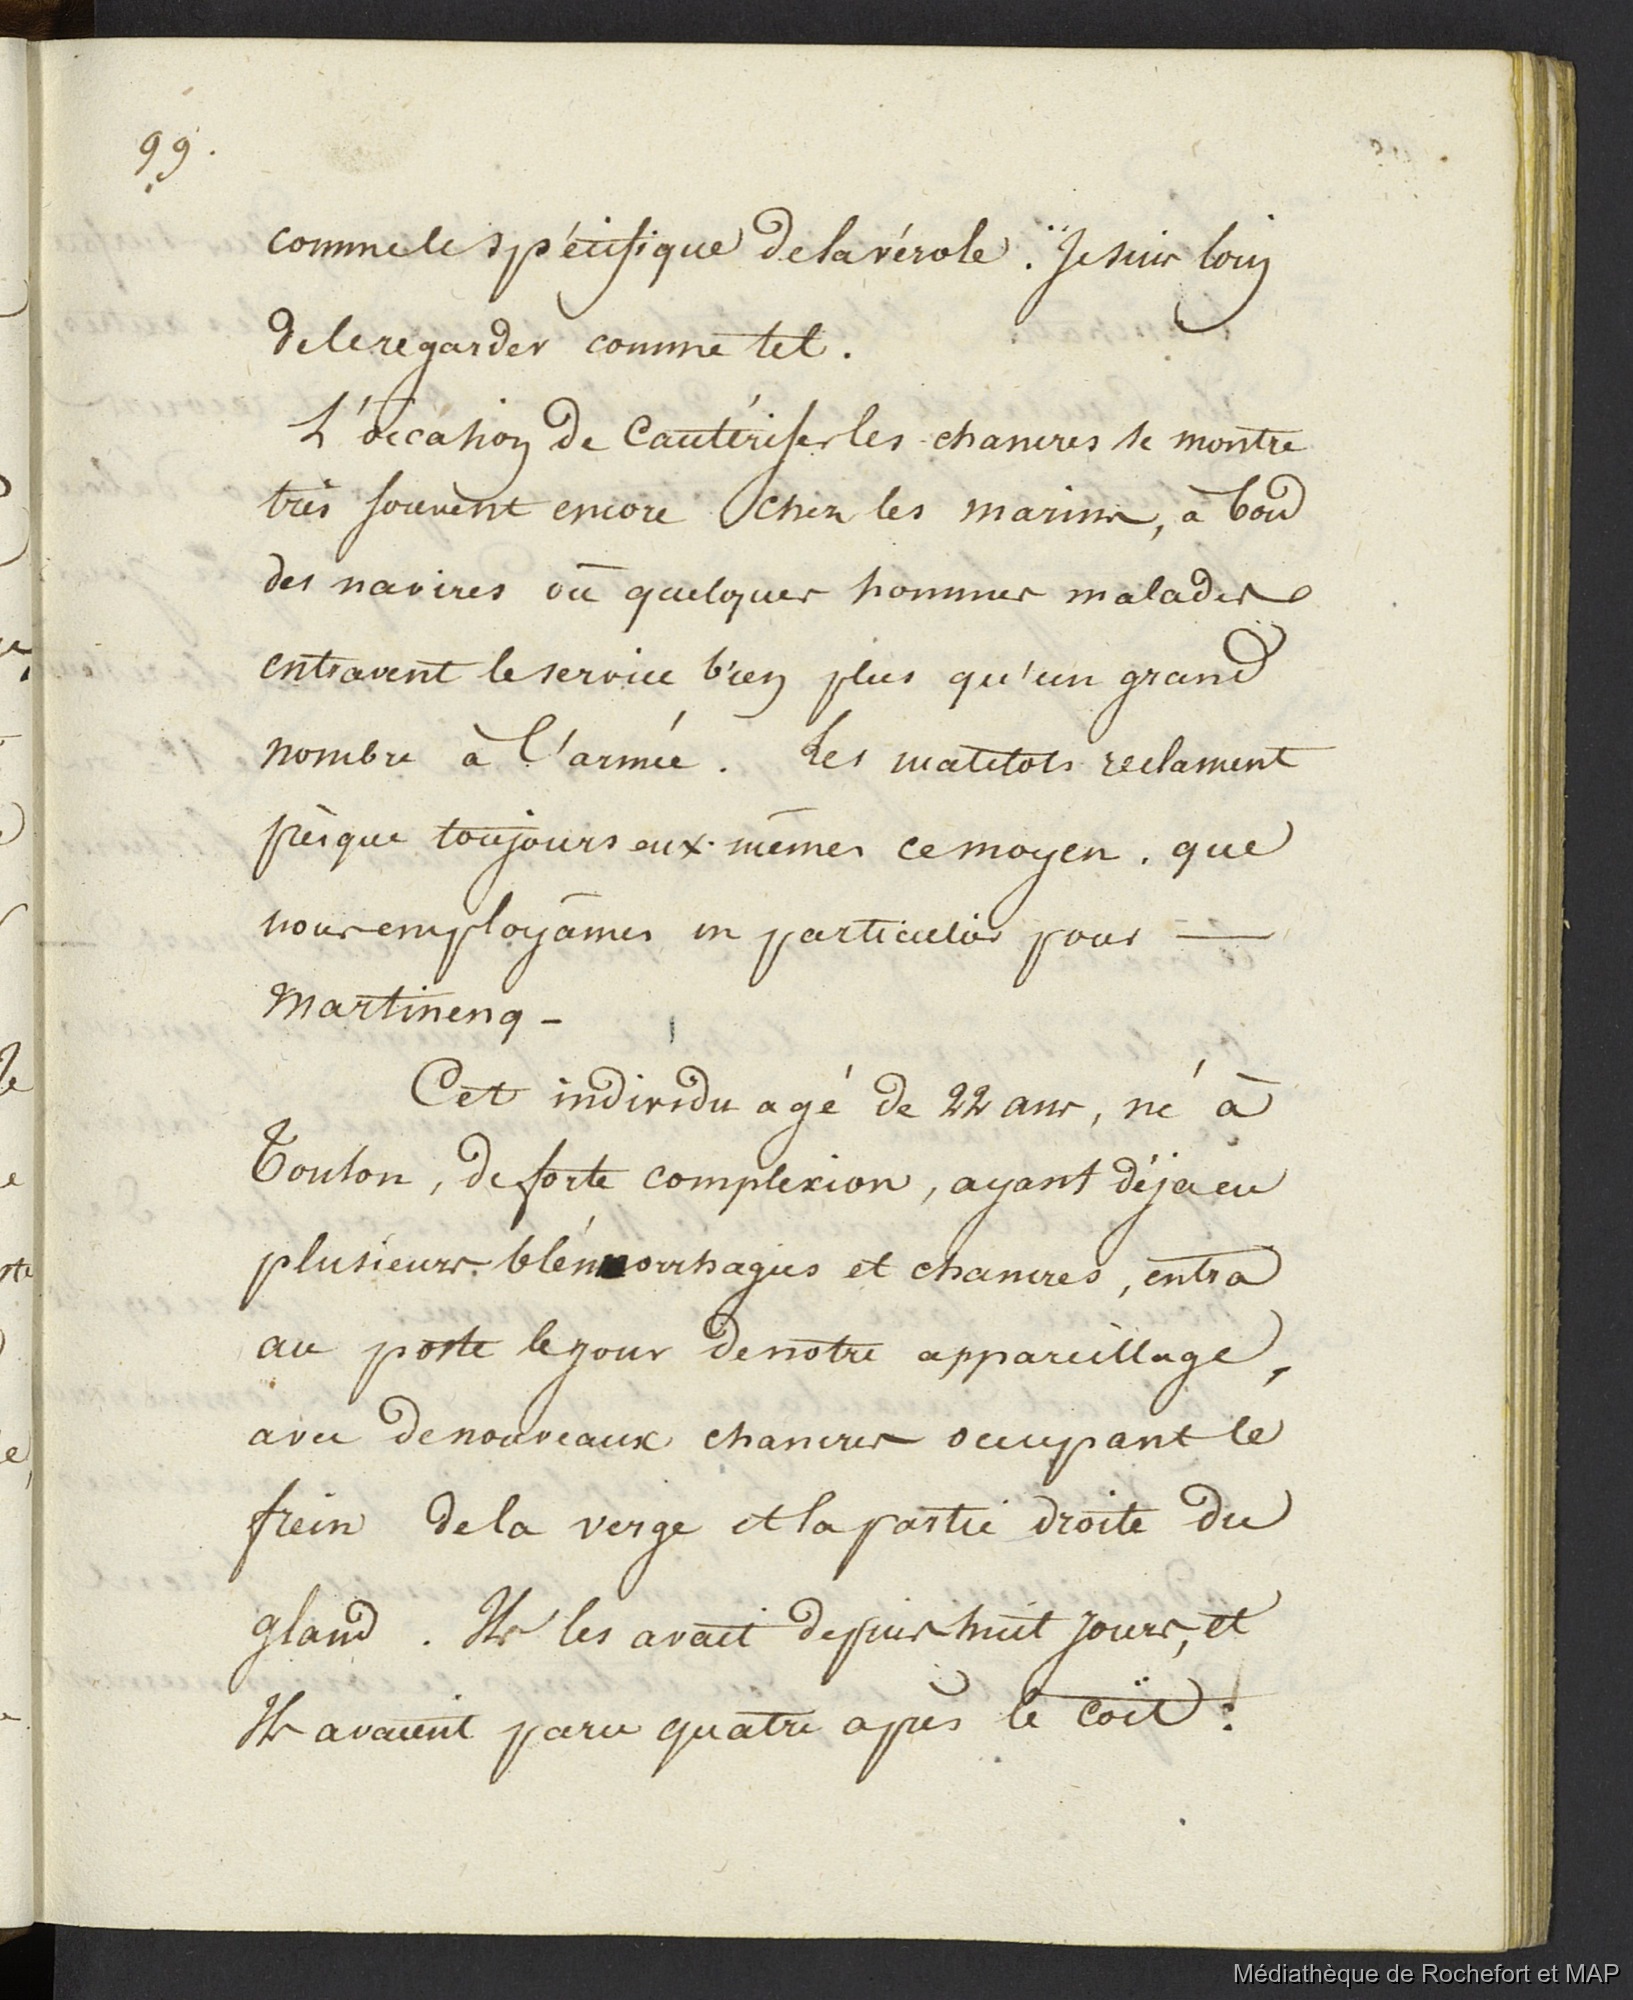 99.
comme le spécifique de la vérole. Je suis loin
de le regarder comme tel.
L'occasion de cautériser les chancres se montre
très souvent encore chez les marins, à bord
des navires où quelques hommes malades
entravent le service bien plus qu'un grand
nombre à l'armée. Les matelots réclament
presque toujours eux-mêmes ce moyen. que
nous employâmes en particulier pour —
Martinenq -
Cet individu agé de 22 ans, né à
Toulon, de forte complexion, ayant déja eu
plusieurs blénnorrhagies et chancres, entra
au poste le jour de notre appareillage,
avec de nouveaux chancres occupant le
frein de la verge et la partie droite du
gland. Il les avait depuis huit jours, et
Ils avaient paru quatre après le coït.
Médiathèque de Rochefort et MAP